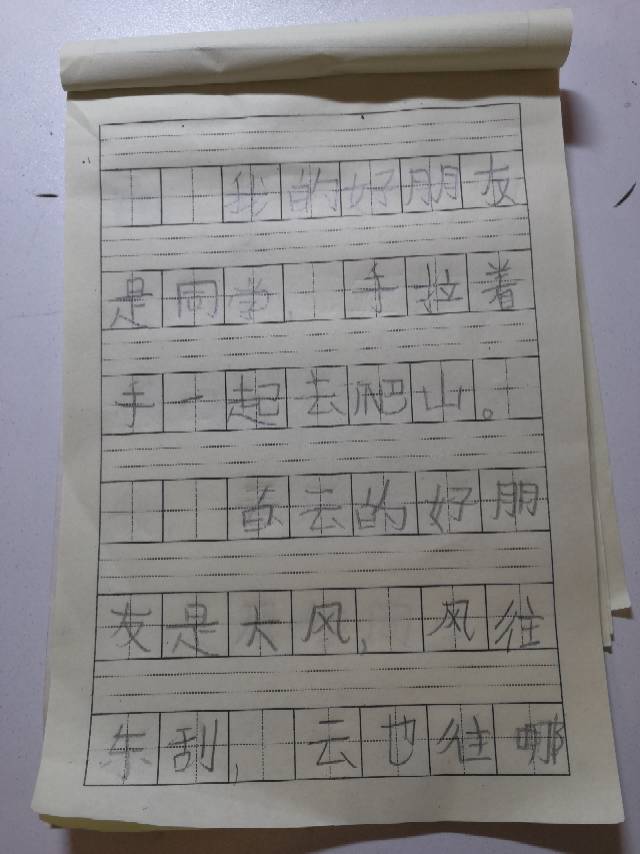 我的好朋友
是同学,手拉着
手一起去爬山。
白云的好朋
友是大风,风往
东刮,云也往哪